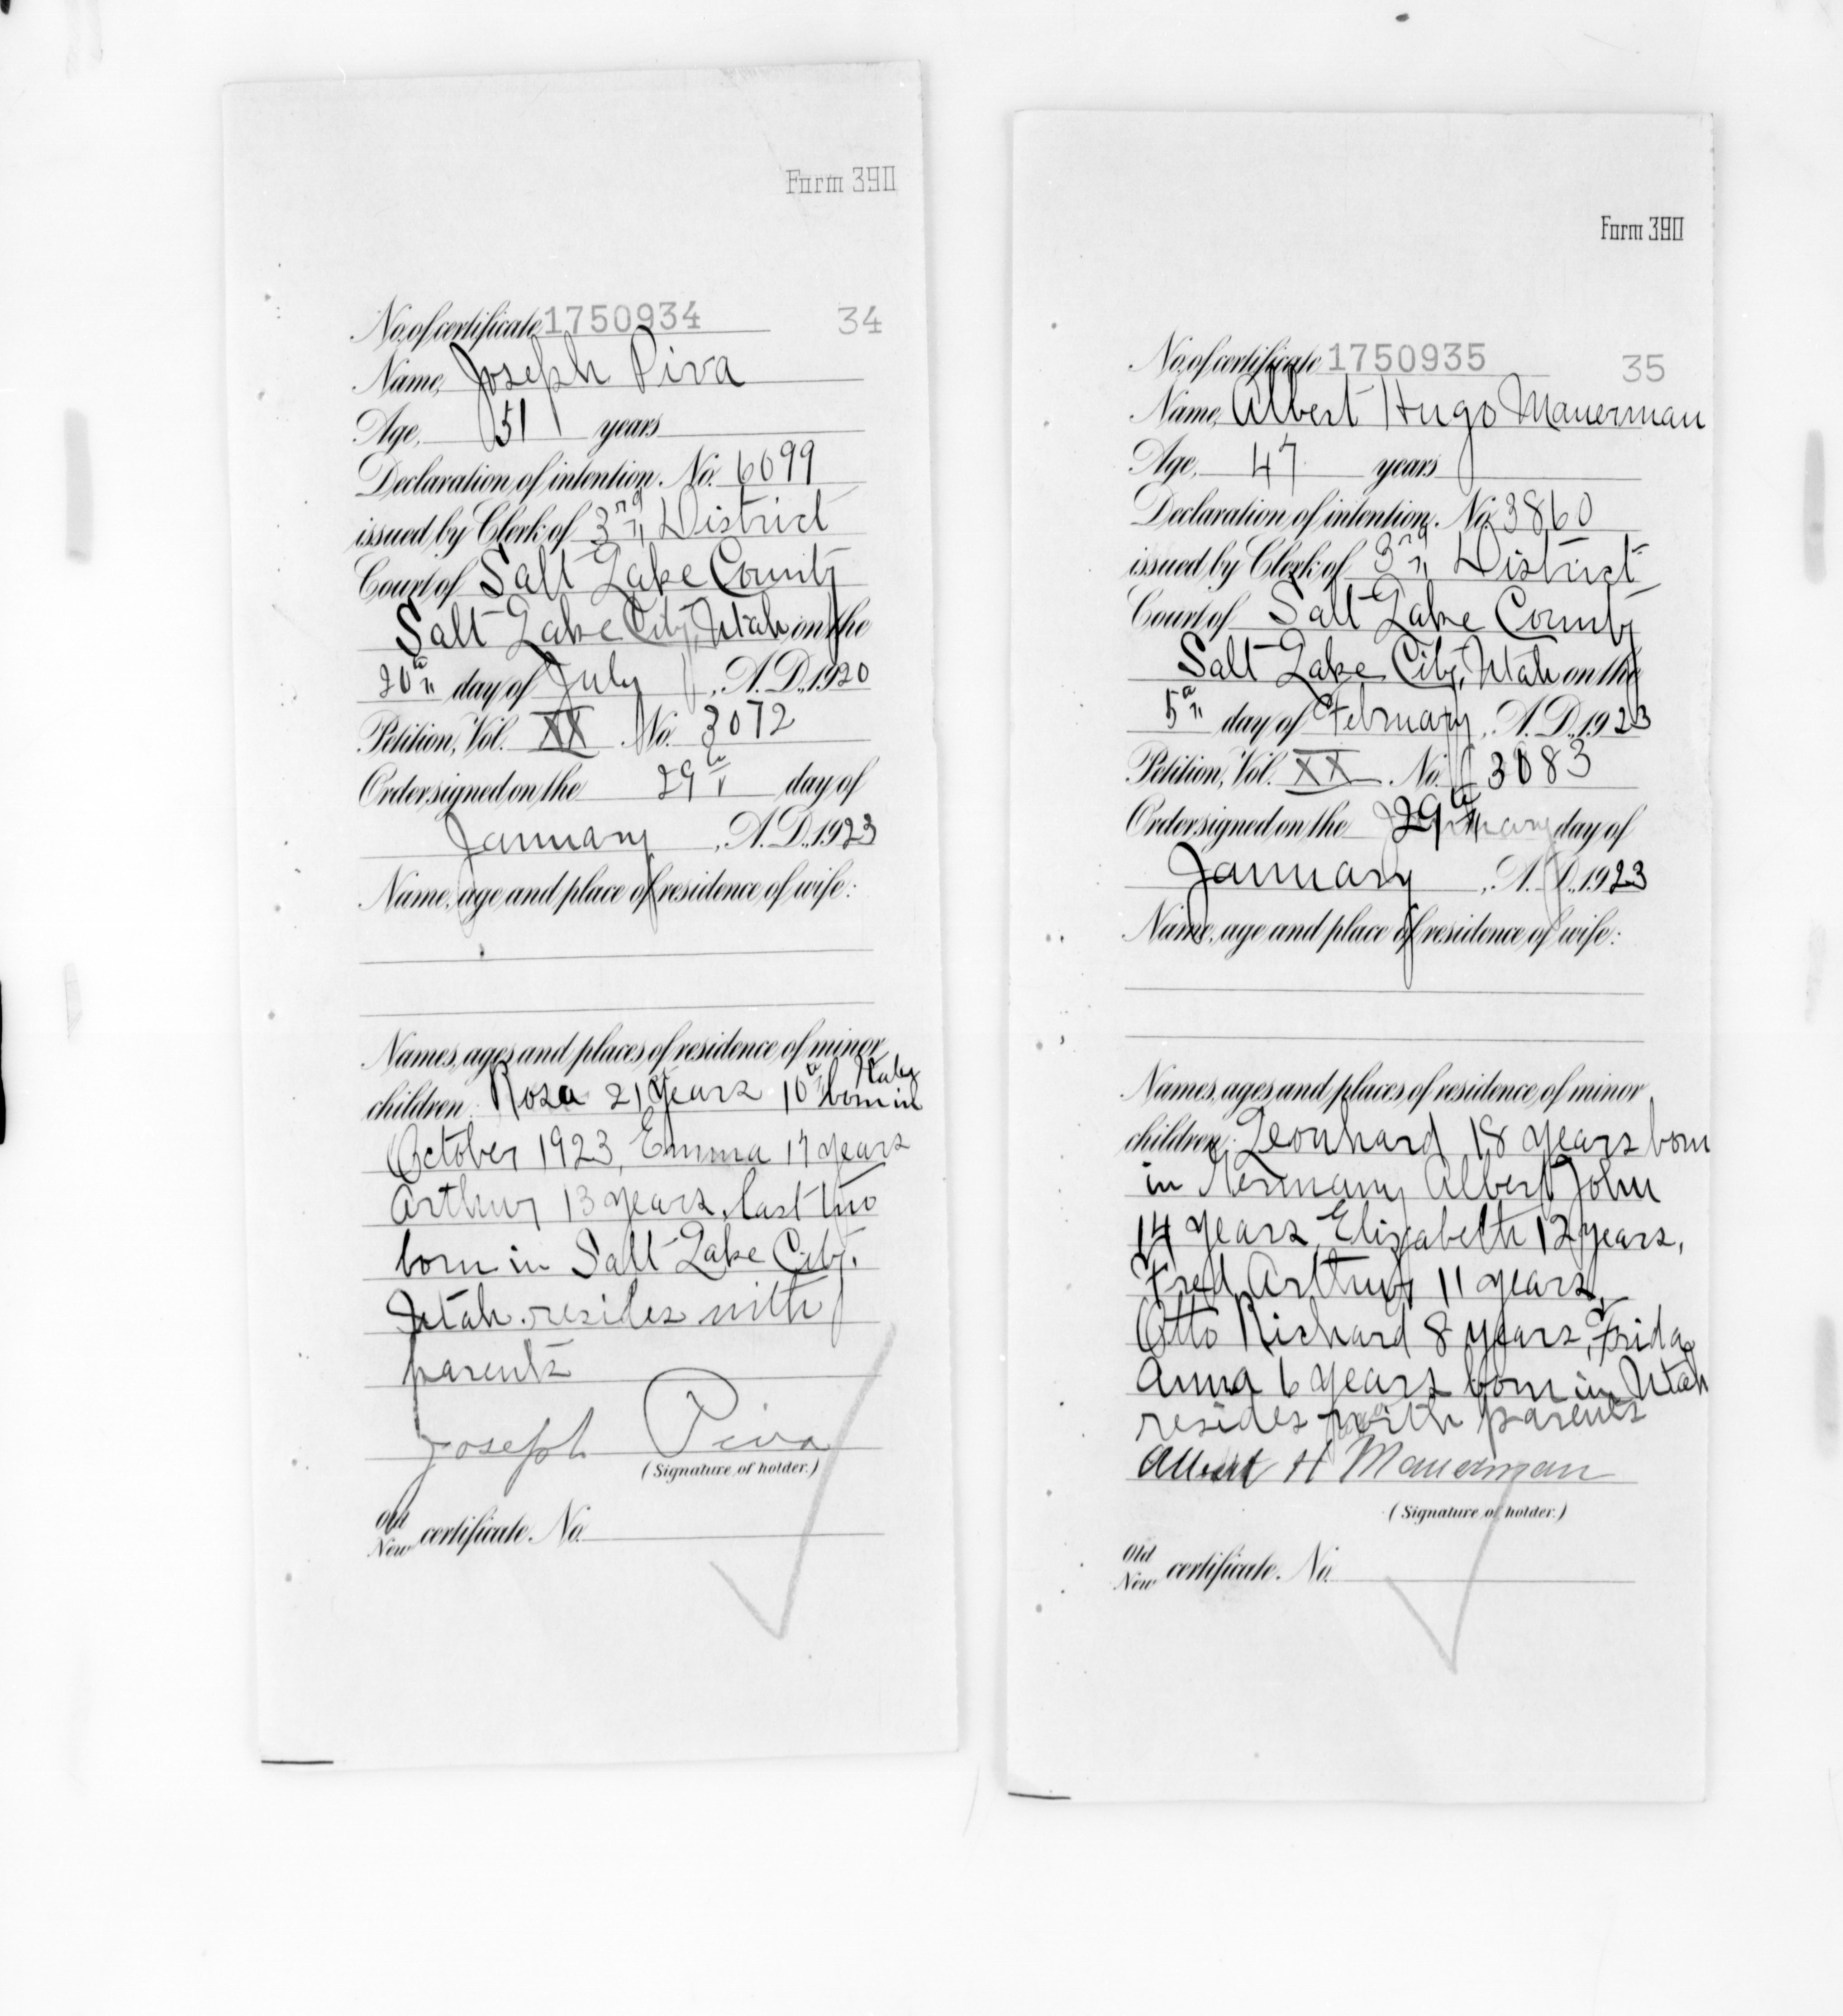 Form 390
No. of certificate 1750934 34
Name, Joseph Piva
Age, 51 years
Declaration of intention. No. 6099
issued by Clerk of 3rd District
Court of Salt Lake County
Salt Lake City, Utah on the
20th day of July, A.D., 1920
Petition, Vol. XX No. 3072
Order signed on the 29th day of
January, A.D., 1923
Name, age and place of residence of wife:
Names, ages and places of residence of minor
children: Rosa 21 years 10th born in Italy
October 1923, Emma 17 years
Arthur 13 years, last two
born in Salt Lake City,
Utah. resides with
parents
Joseph Piva
(Signature of holder.)
Old
New certificate. No.
Form 390
No. of certificate 1750935 35
Name, Albert Hugo Mauerman
Age, 47 years
Declaration of intention. No. 3860
issued by Clerk of 3rd District
Court of Salt Lake County
Salt Lake City, Utah on the
5th day of February, A.D., 1923
Petition, Vol. XX No. 3083
Order signed on the 29th day of
January, A.D., 1923
Name, age and place of residence of wife:
Names, ages and places of residence of minor
children: Leonhard 18 years born
in Germany Albert John
14 years, Elizabeth 12 years,
Fred Arthur 11 years,
Otto Richard 8 years, Frida
Anna 6 years born in Utah
resides with parents
Albert H Mauerman
(Signature of holder.)
Old
New certificate. No.